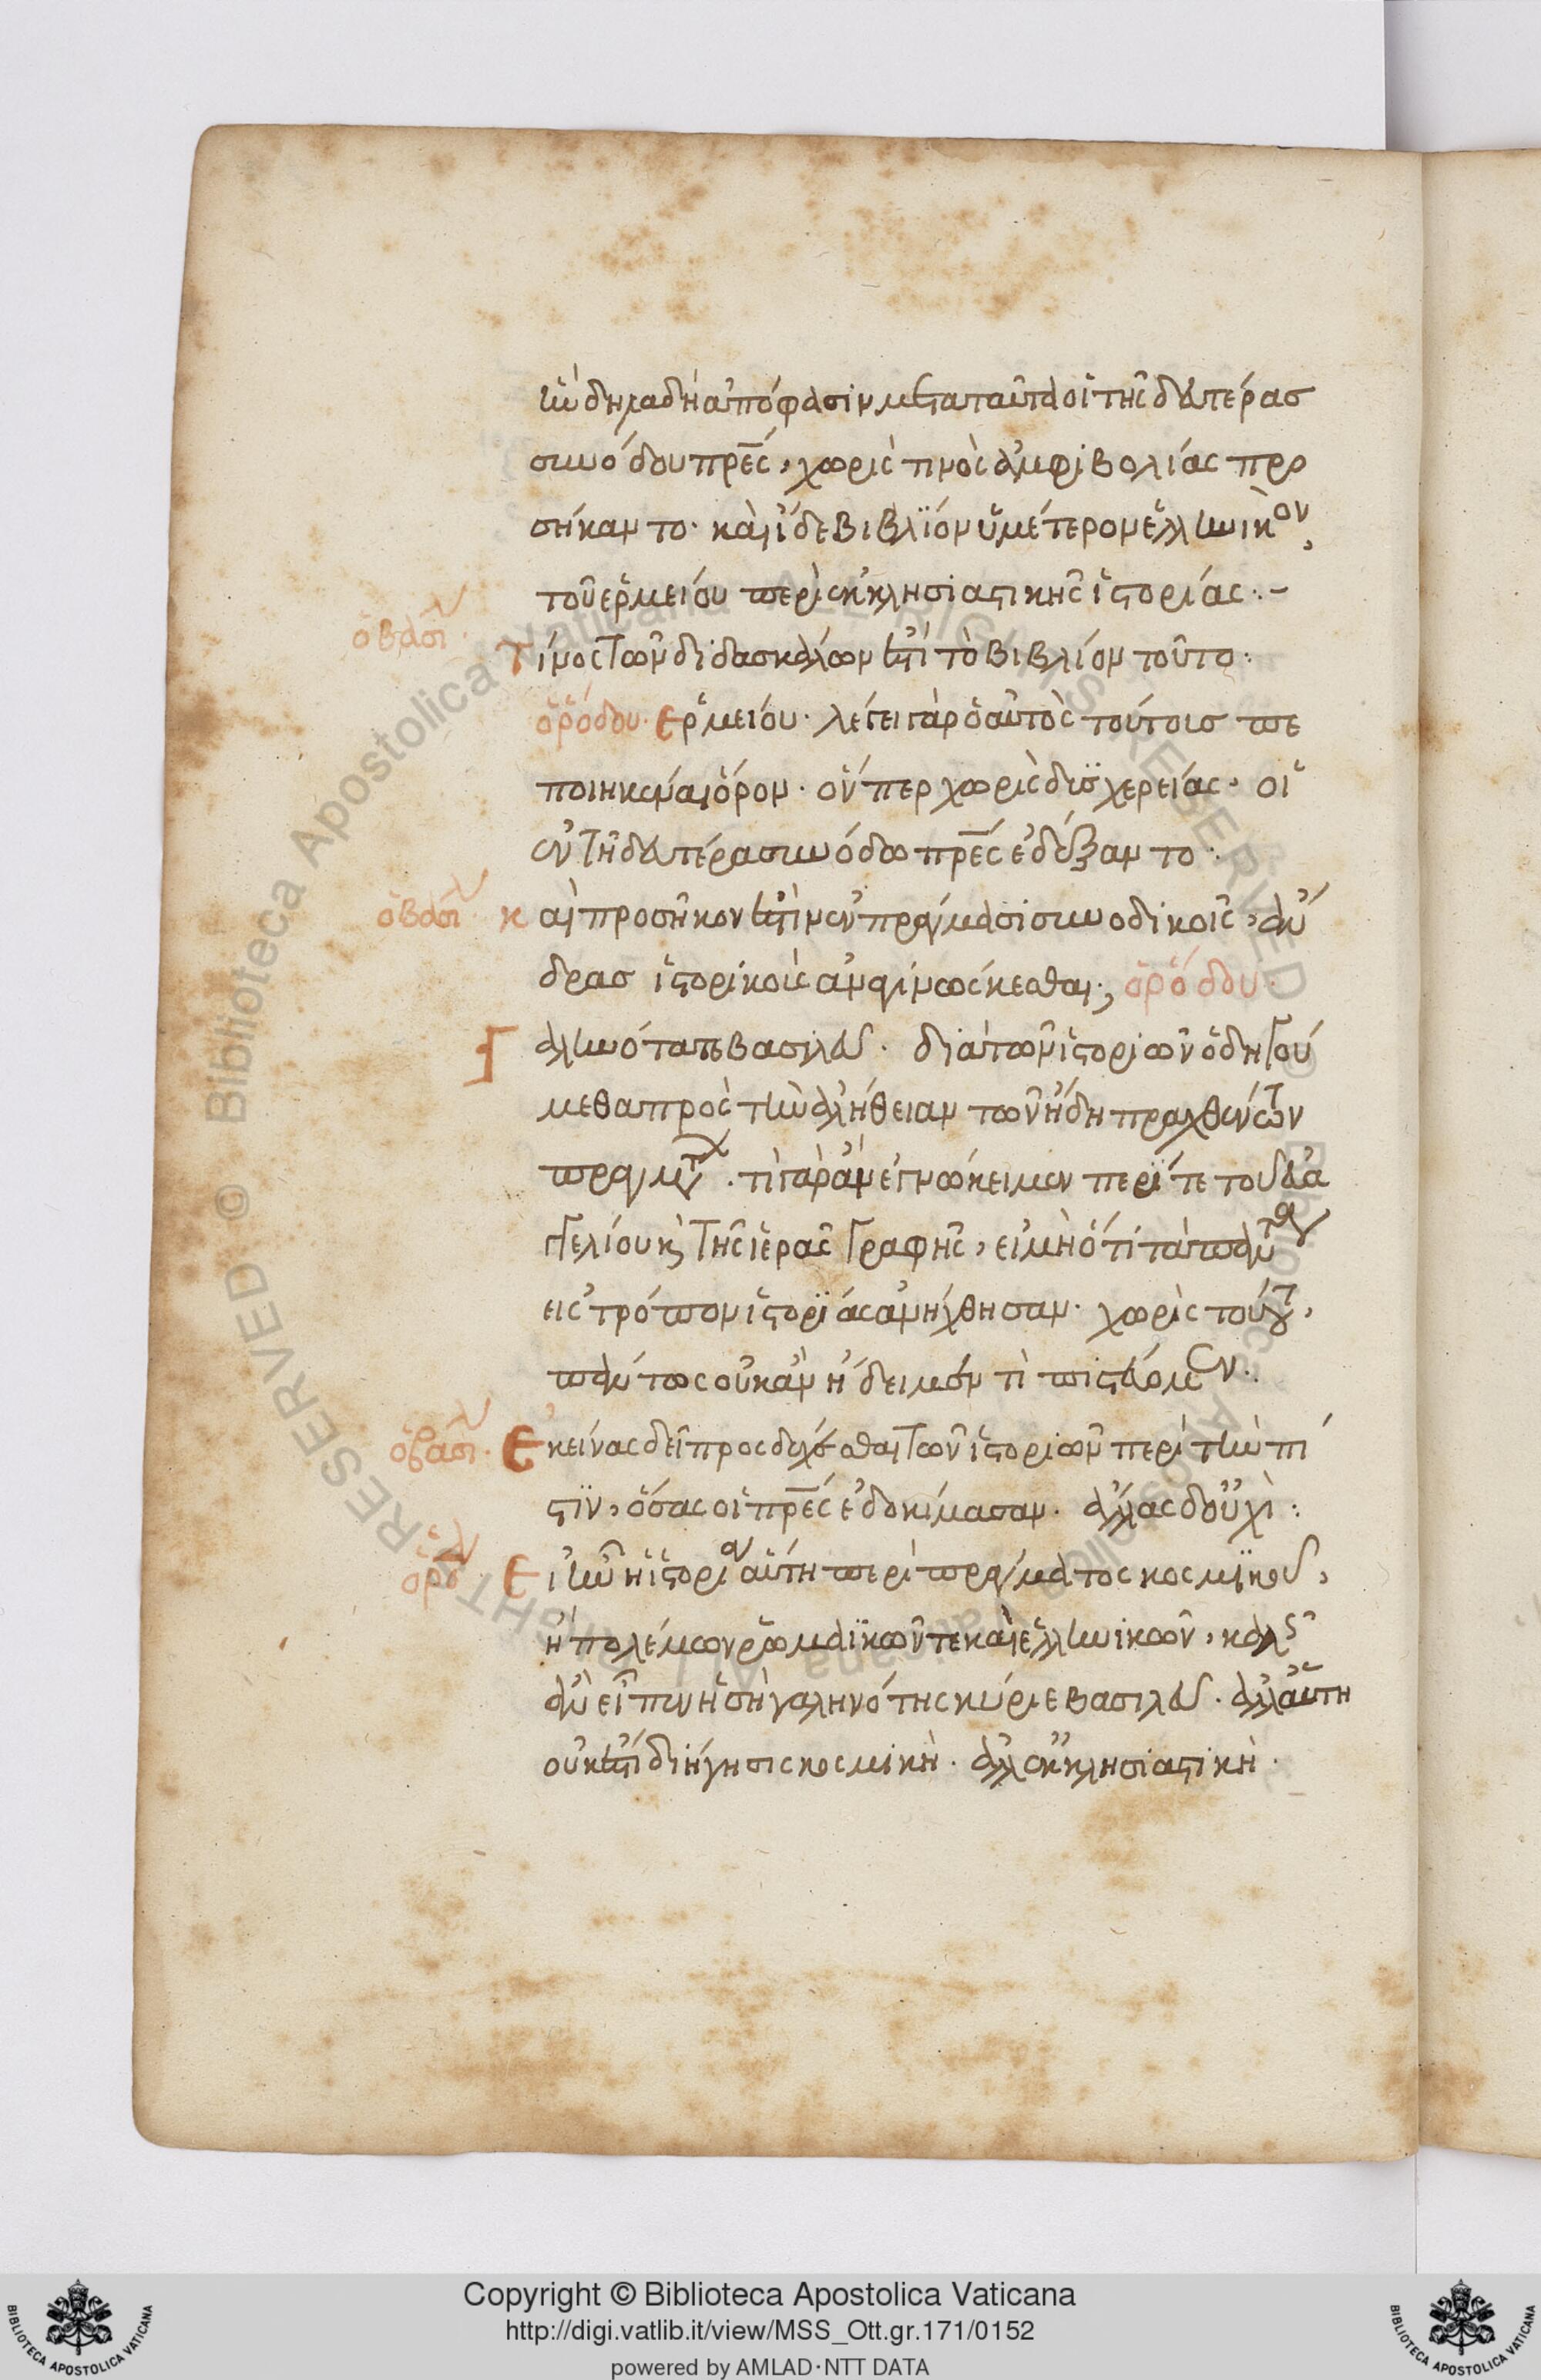 ἣν δηλαδὴ ἀπόφασιν μετὰ ταῦτα οἱ τῆς δευτέρας
συνόδου πρε̅ς, χωρίς τινος ἀμφιβολίας προ
σήκαντο. καὶ ἴδε βιβλίον ὑμέτερον ἑλληνικὸν,
τοῦ ἑρμείου περὶ ἐκκλησιαστικῆς ἱστορίας.–
ὁ βασιλ
Τίνος τῶν διδασκάλων ἐστὶ τὸ βιβλίον τοῦτο:
ὁ ῥόδου. Ἑρμείου. λέγει γὰρ ὁ αὐτὸς τούτοις πε
ποιηκέναι ὅρον. ὅνπερ χωρὶς δυσχερείας, οἱ
ἐν τῇ δευτέρα συνόδω πρε̅ς ἐδέξαντο.
ὁ βασιλ
Καὶ προσῆκον ἐστὶν ἐν πράγμασι συνοδικοῖς, ἄν
δρας ἱστορικοὺς ἀναγινώσκεσθαι; ὁ ῥόδου.
Γαληνότατε βασιλεῦ. διὰ τῶν ἱστοριῶν ὁδηγού
μεθα πρὸς τὴν ἀλήθειαν τῶν ἤδη πραχθέντων
πραγμτ. τί γὰρ ἂν ἐγνώκειμεν περί τε τοῦ εὐα
γγελίου κ τῆς ἱερᾶς γραφῆς, εἰ μὴ ὅτι τὰ πάντα
εἰς τρόπον ἱστορίας ἀνήχθησαν. χωρὶς τούτου,
πάντως οὐκ ἂν ἤδειμέν τι πιστεύομεν.
ὁ βασιλ.
Ἐκείνας δεῖ προσδέχεσθαι τῶν ἱστοριῶν περὶ τὴν πί
στιν, ὅσας οἱ πρε̅ς ἐδοκίμασαν. ἄλλας δ' οὐχὶ:
ὁ ῥόδ
Εἰ ἦν ἡ ἱστορία αὕτη περὶ πράγματος κοσμικοῦ,
ἢ πολέμων ῥωμαϊκῶν τε καὶ ἑλληνικῶν, καλῶς
ἂν εἶπεν ἡ σὴ γαληνότης κύριε βασιλεῦ. ἀλλ' αὕτη
οὐκ ἔστι διήγησις κοσμικὴ. ἀλλ' ἐκκλησιαστικὴ.
Copyright © Biblioteca Apostolica Vaticana
http://digi.vatlib.it/view/MSS_Ott.gr.171/0152
powered by AMLAD·NTT DATA